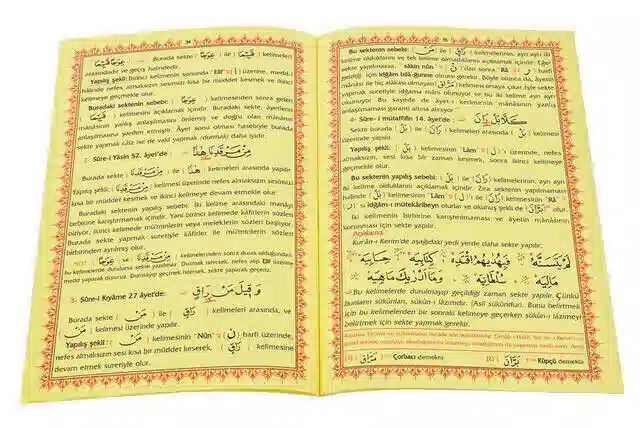 34
Burada sekte ( عِوَجًا ) ile ( قَيِّمًا ) kelimeleri
arasındadır ve geçiş halindedir.
Yapılış şekli: Birinci kelimenin sonunda "Elif" ( ا ) üzerine, medd-i
hâlinde nefes almaksızın sesimizi kısa bir müddet kesmek ve ikinci
kelimeye geçmekle olur.
Buradaki sektenin sebebi: ( عِوَجًا ) kelimesinden sonra gelen
( قَيِّمًا ) kelimesini açıklamak içindir. Buradaki sekte, âyetlerin
mânâsının yanlış anlaşılmasını önlemiş ve doğru olan mânânın
anlaşılmasına yardım etmiştir. Âyet sonu olması hasebiyle burada
sekte yapmak câiz ise de vakf yapmak (durmak) daha iyidir.
2. Sûre-i Yâsin 52. âyet'de: مِنْ مَرْقَدِنَا هٰذَا
Burada sekte ( مِنْ مَرْقَدِنَا ) ile ( هٰذَا ) kelimeleri arasında yapılır.
Yapılış şekli: ( مِنْ مَرْقَدِنَا ) kelimesi üzerinde nefes almaksızın sesimizi
kısa bir müddet kesmek ve ikinci kelimeye devam etmekle olur.
Buradaki sektenin yapılış sebebi: İki kelime arasındaki manayı
birbirine karıştırmamak içindir. Yani birinci kelimede kâfirlerin sözleri
bitiyor, ikinci kelimede mü'minlerin veya meleklerin sözleri başlıyor.
Burada sekte yapmak suretiyle kâfirler ile mü'minlerin sözleri
birbirinden ayrılmış olur.
kelimelerinden sonra durak olduğundan,
bu kelimelerde durulursa sekte yapılmaz. Durmak istersek, nefes alıp Elif üzerine
medd yaparak dururuz. Durmayıp geçmek istersek, sekte yaparak geçeriz.
3. Sûre-i Kıyâme 27 âyet'de: وَقِيلَ مَنْ رَاقٍ
Burada sekte ( مَنْ ) ile ( رَاقٍ ) kelimeleri arasında, ve
( مَنْ ) kelimesi üzerinde yapılır.
Yapılış şekli: ( مَنْ ) kelimesinin "Nûn" ( ن ) harfi üzerinde,
nefes almaksızın sesi kısa bir müddet keserek, ( رَاقٍ ) kelimesine
devam etmek suretiyle olur.
35
Bu sektenin sebebi: ( مَنْ ) ile ( رَاقٍ ) kelimelerinin, ayrı ayrı iki
kelime olduklarını ve tek kelime olmadıklarını açıklamak içindir. Eğer
sekte yapılmazsa, sâkin nûn ( نْ )'dan sonra "Râ" ( ر )
geldiği için idğâm bilâ-ğunne olması gerekir. Böyle olunca da, âyetin
mânâsı ile hiç alâkası olmayan ( مَرَّاقٍ ) kelimesi ortaya çıkar. İşte sekte
yapmak suretiyle idğâma mâni olunuyor ve bu iki kelime ayrı ayrı
okunuyor. Bu sayede de âyet-i kerîme'nin mânâsının yanlış
anlaşılmasını garanti altına alınıyor.
4. Sûre-i mütaffifîn 14. âyet'de: كَلَّا بَلْ رَانَ
Sekte burada ( بَلْ ) ile ( رَانَ ) kelimeleri arasında ( بَلْ ) kelimesi
üzerinde yapılır.
Yapılış şekli: ( بَلْ ) kelimesinin "Lâm" ( لْ ) ı üzerinde, nefes
almaksızın, sesi kısa bir zaman keserek, sonra ikinci kelimeye
geçmekle olur.
Bu sektenin yapılış sebebi: ( بَلْ ) ile ( رَانَ ) kelimelerinin, ayrı ayrı
iki kelime olduklarını açıklamak içindir. Zira sektenin yapılmaması
halinde ( بَلْ ) kelimesinin "Lâm" ( لْ ) ı ( رَانَ ) kelimesinin "Râ"
( ر ) sı idğâm-ı mütekâribeyn olurlar ve okunuş şekli de ( بَرَّانَ ) olur.
İki kelimenin birbirine karıştırılmaması ve âyetin mânâsının
korunması için sekte yapılır.
Açıklama
Kur'ân-ı Kerim'de aşağıdaki yedi yerde daha sekte yapılır.
لَمْ يَتَسَنَّهْ فَبِهُدٰيهُمُ اقْتَدِهْ كِتَابِيَهْ حِسَابِيَهْ
مَالِيَهْ سُلْطَانِيَهْ وَمَا اَدْرٰيكَ مَاهِيَهْ
Bu kelimelerde durulmayıp geçildiği zaman sekte yapılır. Çünkü
bunların sükûnları, sükûn-i lâzımdır. (Aslî sükûndur). Bunu belirtmek
için bu kelimelerden bir sonraki kelimeye geçerken sükûn-i lâzımeyi
belirtmek için sekte yapmak gerekir.
(1) ( مَرَّاقٍ ) = Çorbacı demektir
(2) ( بَرَّانَ ) = Küpçü demektir